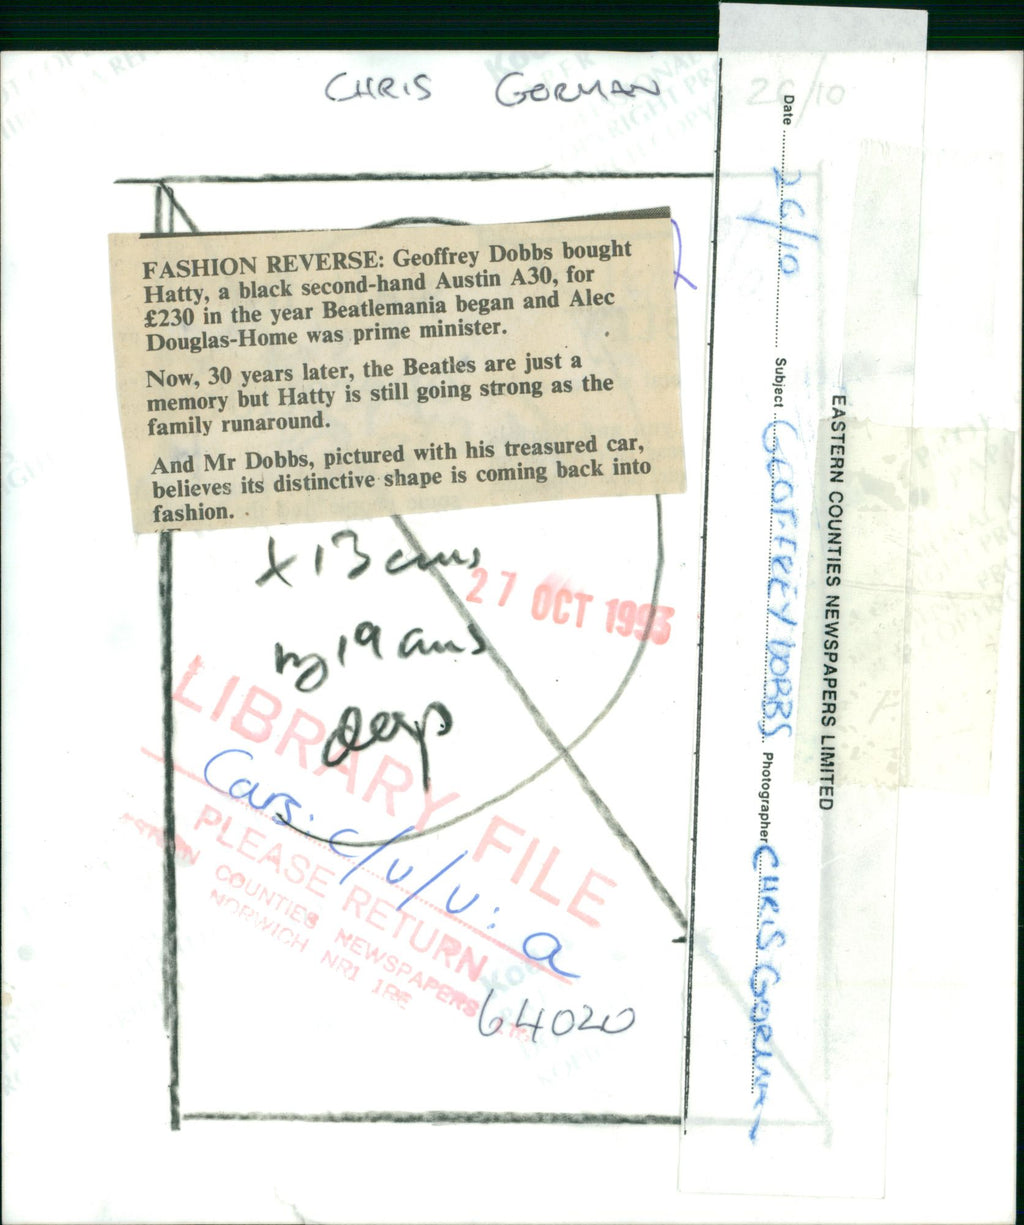 CHRIS GORMAN
26/10
FASHION REVERSE: Geoffrey Dobbs bought
Hatty, a black second-hand Austin A30, for
£230 in the year Beatlemania began and Alec
Douglas-Home was prime minister.
Now, 30 years later, the Beatles are just a
memory but Hatty is still going strong as the
family runaround.
And Mr Dobbs, pictured with his treasured car,
believes its distinctive shape is coming back into
fashion.
x 13 cms
by 19 cms
deep
27 OCT 1993
LIBRARY FILE
Cars: c/u/u: a
PLEASE RETURN
EASTERN COUNTIES NEWSPAPERS LTD
NORWICH NR1 1RE
64020
EASTERN COUNTIES NEWSPAPERS LIMITED
Date 26/10 Subject GEOFFREY DOBBS Photographer CHRIS GORMAN